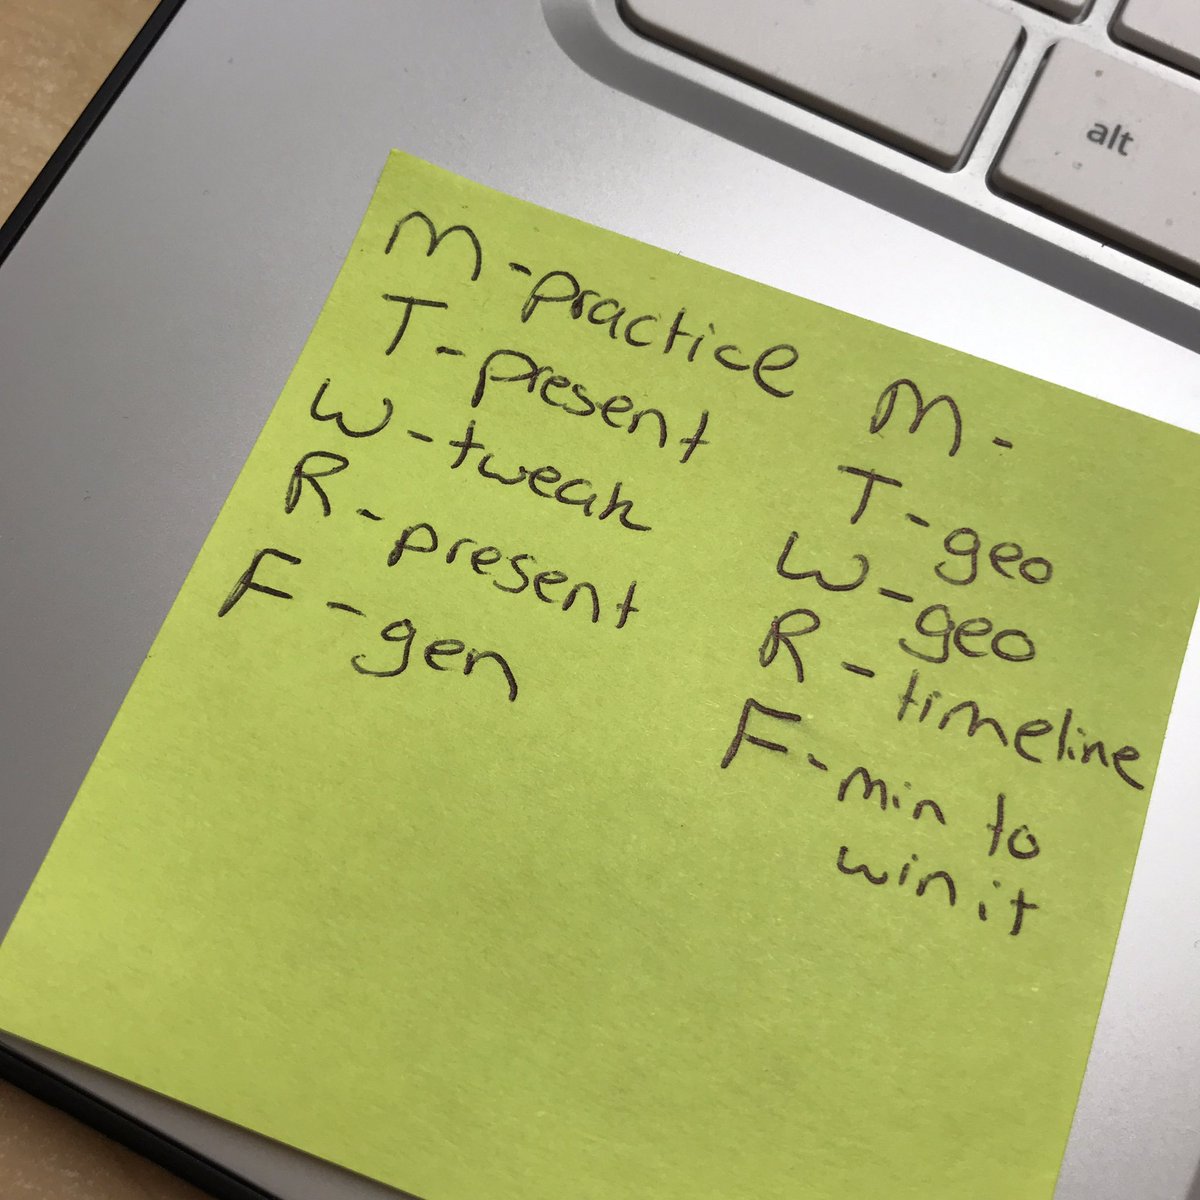 alt
M - practice
T - present
W - tweak
R - present
F - gen
M -
T - geo
W - geo
R - timeline
F - min to
win it